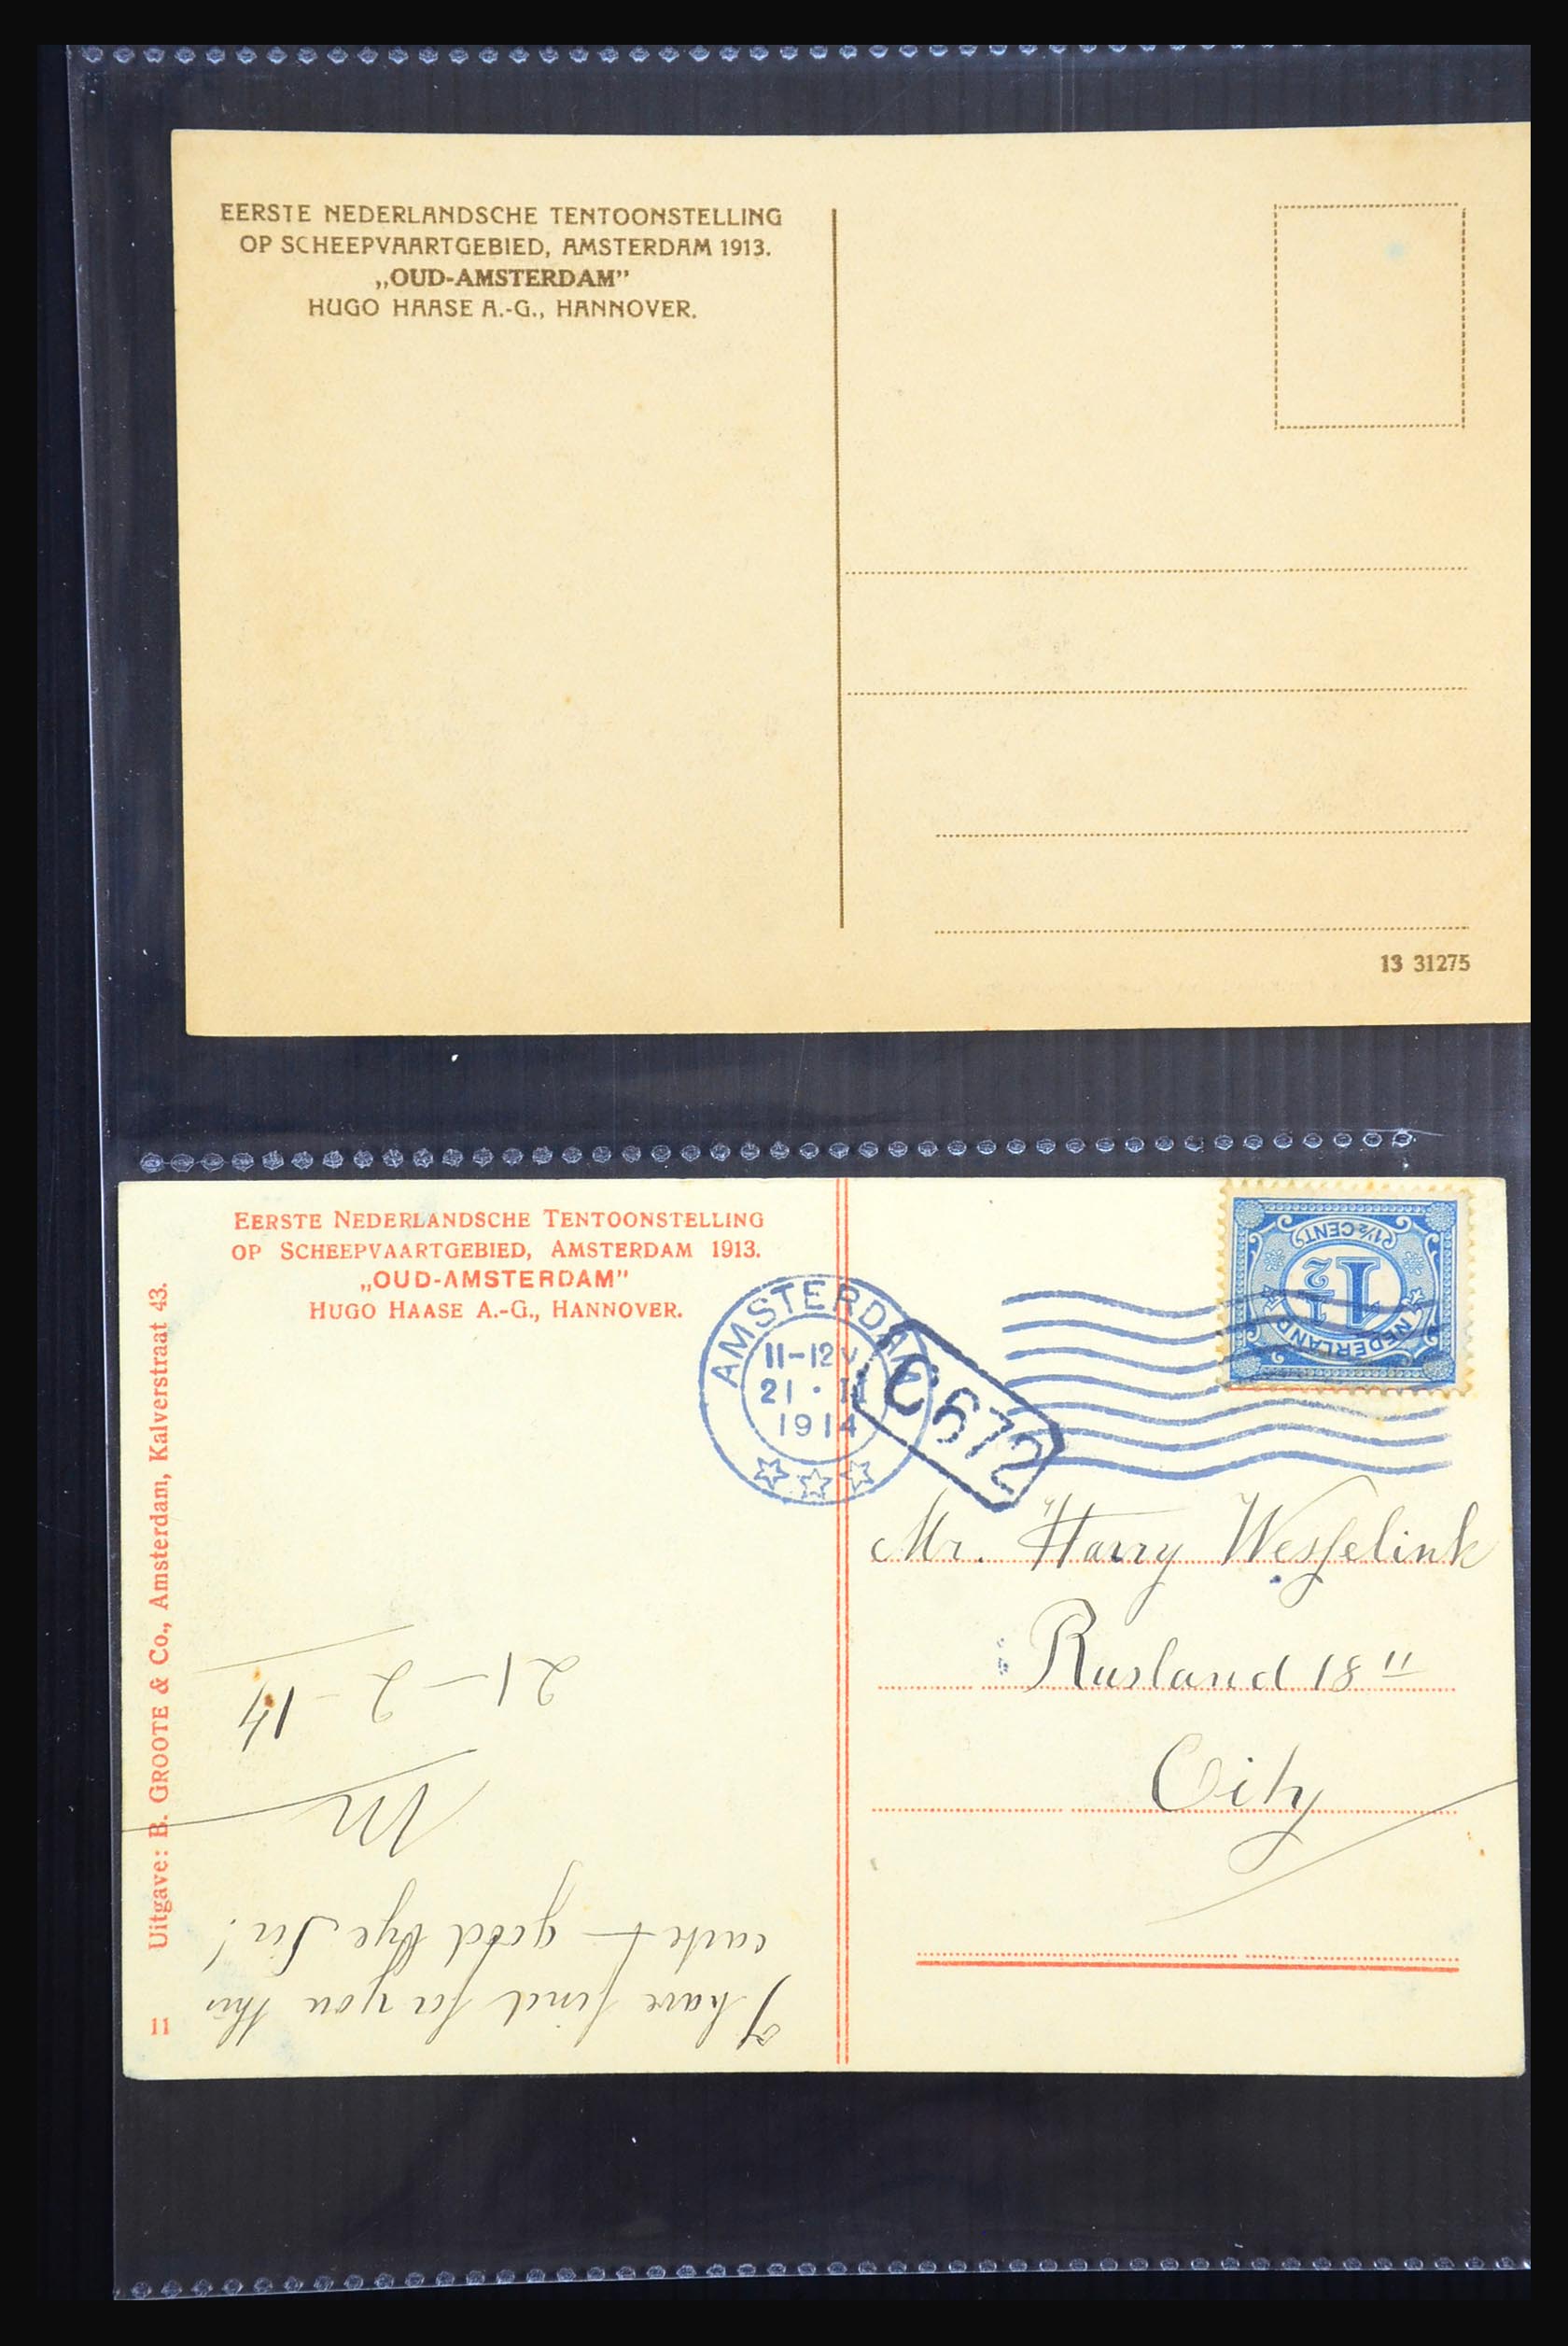 EERSTE NEDERLANDSCHE TENTOONSTELLING
OP SCHEEPVAARTGEBIED, AMSTERDAM 1913.
„OUD-AMSTERDAM”
HUGO HAASE A.-G., HANNOVER.
13 31275
EERSTE NEDERLANDSCHE TENTOONSTELLING
OP SCHEEPVAARTGEBIED, AMSTERDAM 1913.
„OUD-AMSTERDAM”
HUGO HAASE A.-G., HANNOVER.
Uitgave: B. GROOTE & Co., Amsterdam, Kalverstraat 43.
11
AMSTERDAM
11-12V
21 · II
1914
C672
1½ CENT
1½
NEDERLAND
Mr. Harry Wesselink
Rusland 18 II
City
I have find for you this
card good bye Sir!
M
21-2-14